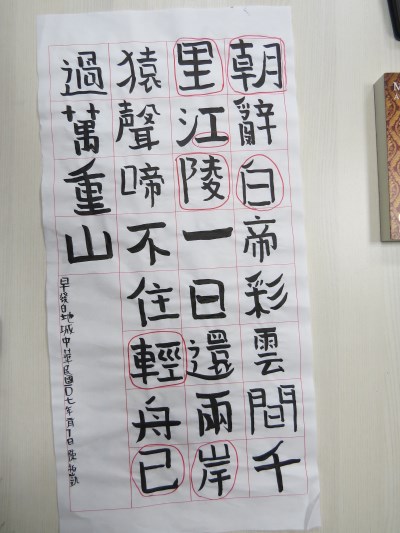 朝辭白帝彩雲間千
里江陵一日還兩岸
猿聲啼不住輕舟已
過萬重山
早發白地城中華民國〇七年